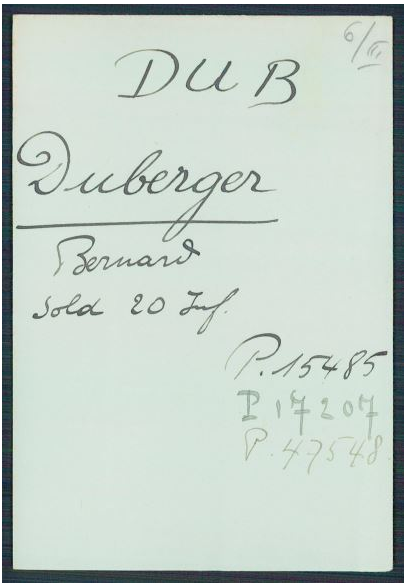 6/II
DUB
Duberger
Bernard
Sold 20 Inf.
P. 15485
P 17207
P. 47548.